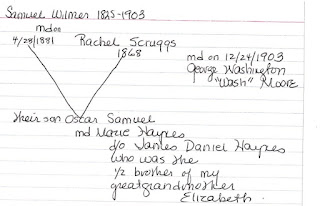 Samuel Wilmer 1825-1903
md on
4/28/1881
Rachel Scruggs
1868
md on 12/24/1903
George Washington
"Wash" Moore
their son Oscar Samuel
md Marie Haynes
d/o James Daniel Haynes
who was the
1/2 brother of my
greatgrandmother
Elizabeth